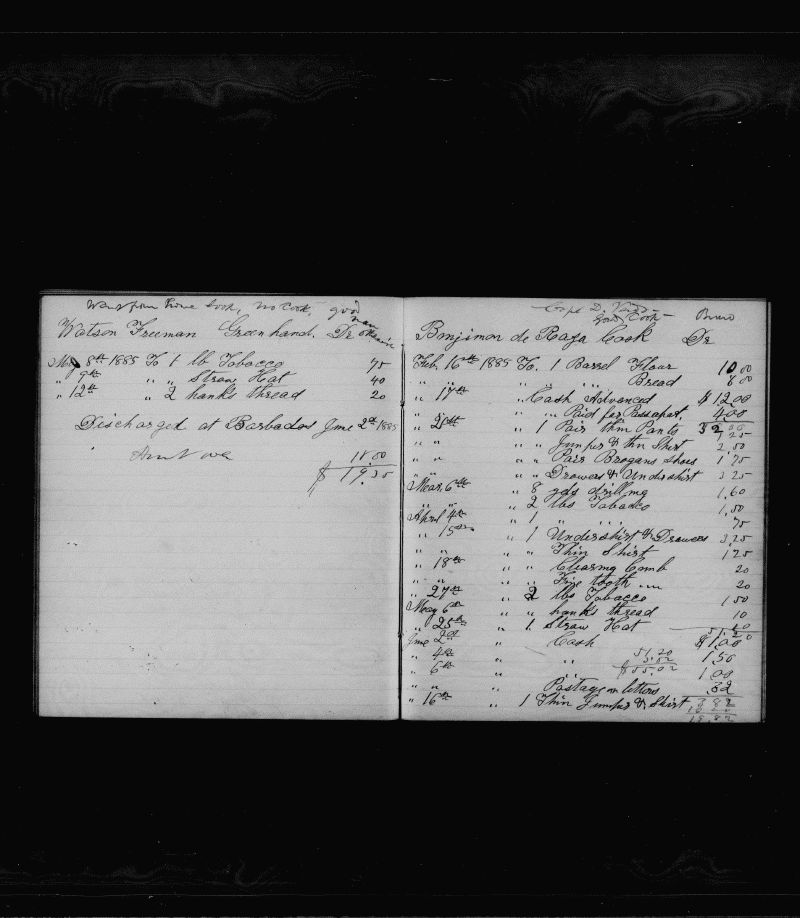 Went from home cook, no cook, good
man otherwise
Watson Freeman Greenhand. Dr
May 8th 1885 To 1 lb Tobacco 75
" 9th " " Straw Hat 40
" 12th " 2 hanks thread 20
Discharged at Barbados June 2nd 1885
Amt over 18.00
$19.35
Cape D. Verd
Good Cook Bravo
Benjimon de Raza Cook Dr
Feb. 16th 1885 To. 1 Barrel Flour 10.00
" " " " " Bread 8.00
" 17th " Cash Advanced $12.00
" " " " Paid for Passaport. 4.00
32.00
" 20th " 1 Pair thin Pants 1.25
" " " " Jumper & thin Shirt 2.50
" " " " Pair Brogans shoes 1.75
" " Drawers & Undershirt 3.25
Mear. 6th " 8 yds drilling 1.60
" " " 2 lbs Tobacco 1.50
April 4th " 1 " " 75
" 15th " 1 Undershirt & Drawers 3.25
" " " " Thin Shirt 1.25
" 18th " " Clearing Comb 20
" " " " Fine tooth " 20
" 27th " 2 lbs Tobacco 1.50
May 6th " " hanks thread 10
" 25th " 1 Straw Hat 40
51.20
June 2nd " Cash $1.00
" 4th " " 51.20 1.50
" 6th " " 3.82 1.00
$55.02
" " " Postage on letters 32
3.82
" 16th " 1 Thin Jumper & Shirt